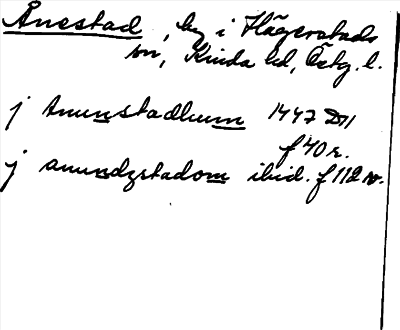 Ånestad, by i Hägerstads
sn, Kinda hd, Östg. l.
j Anunstadhum 1447 D11
f 40 r.
j anundzstadom ibid. f 112 v.